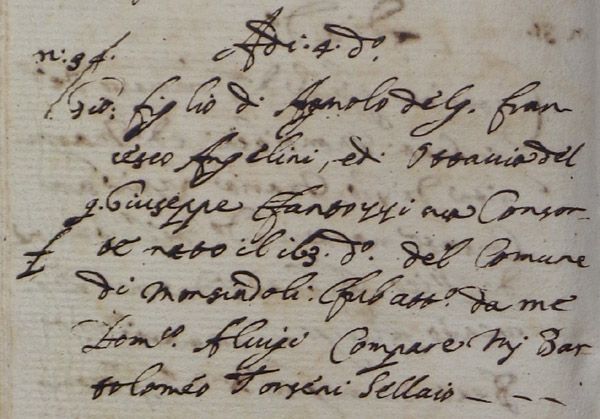 Adi. 4. do.
n: 34.
Gio: figlio di Agnolo del q. Fran-
cesco Angelini, ed Ottavia del
q. Giuseppe Fantozzi sua Consor-
te nato il di 3. do. del Comune
di Monsindoli. Fu batto. da me
Domco. Aluigi Compare Mj Bar
tolomeo Torseni Sellaio - - -